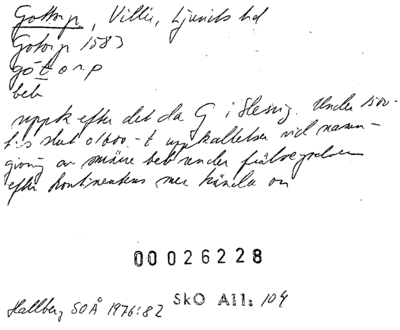 Gottorp, Villie, Ljunits hd
Gotorp 1583
götorp
beb
uppk efter det da G i Slesvig. Under 1500-
t:s slut o 1600-t uppkallelser vid namn-
givning av smärre beb under frälsegodsen
efter kontinentens mer kända on
00026228
Hallberg SOÅ 1976:82 SkO All: 104